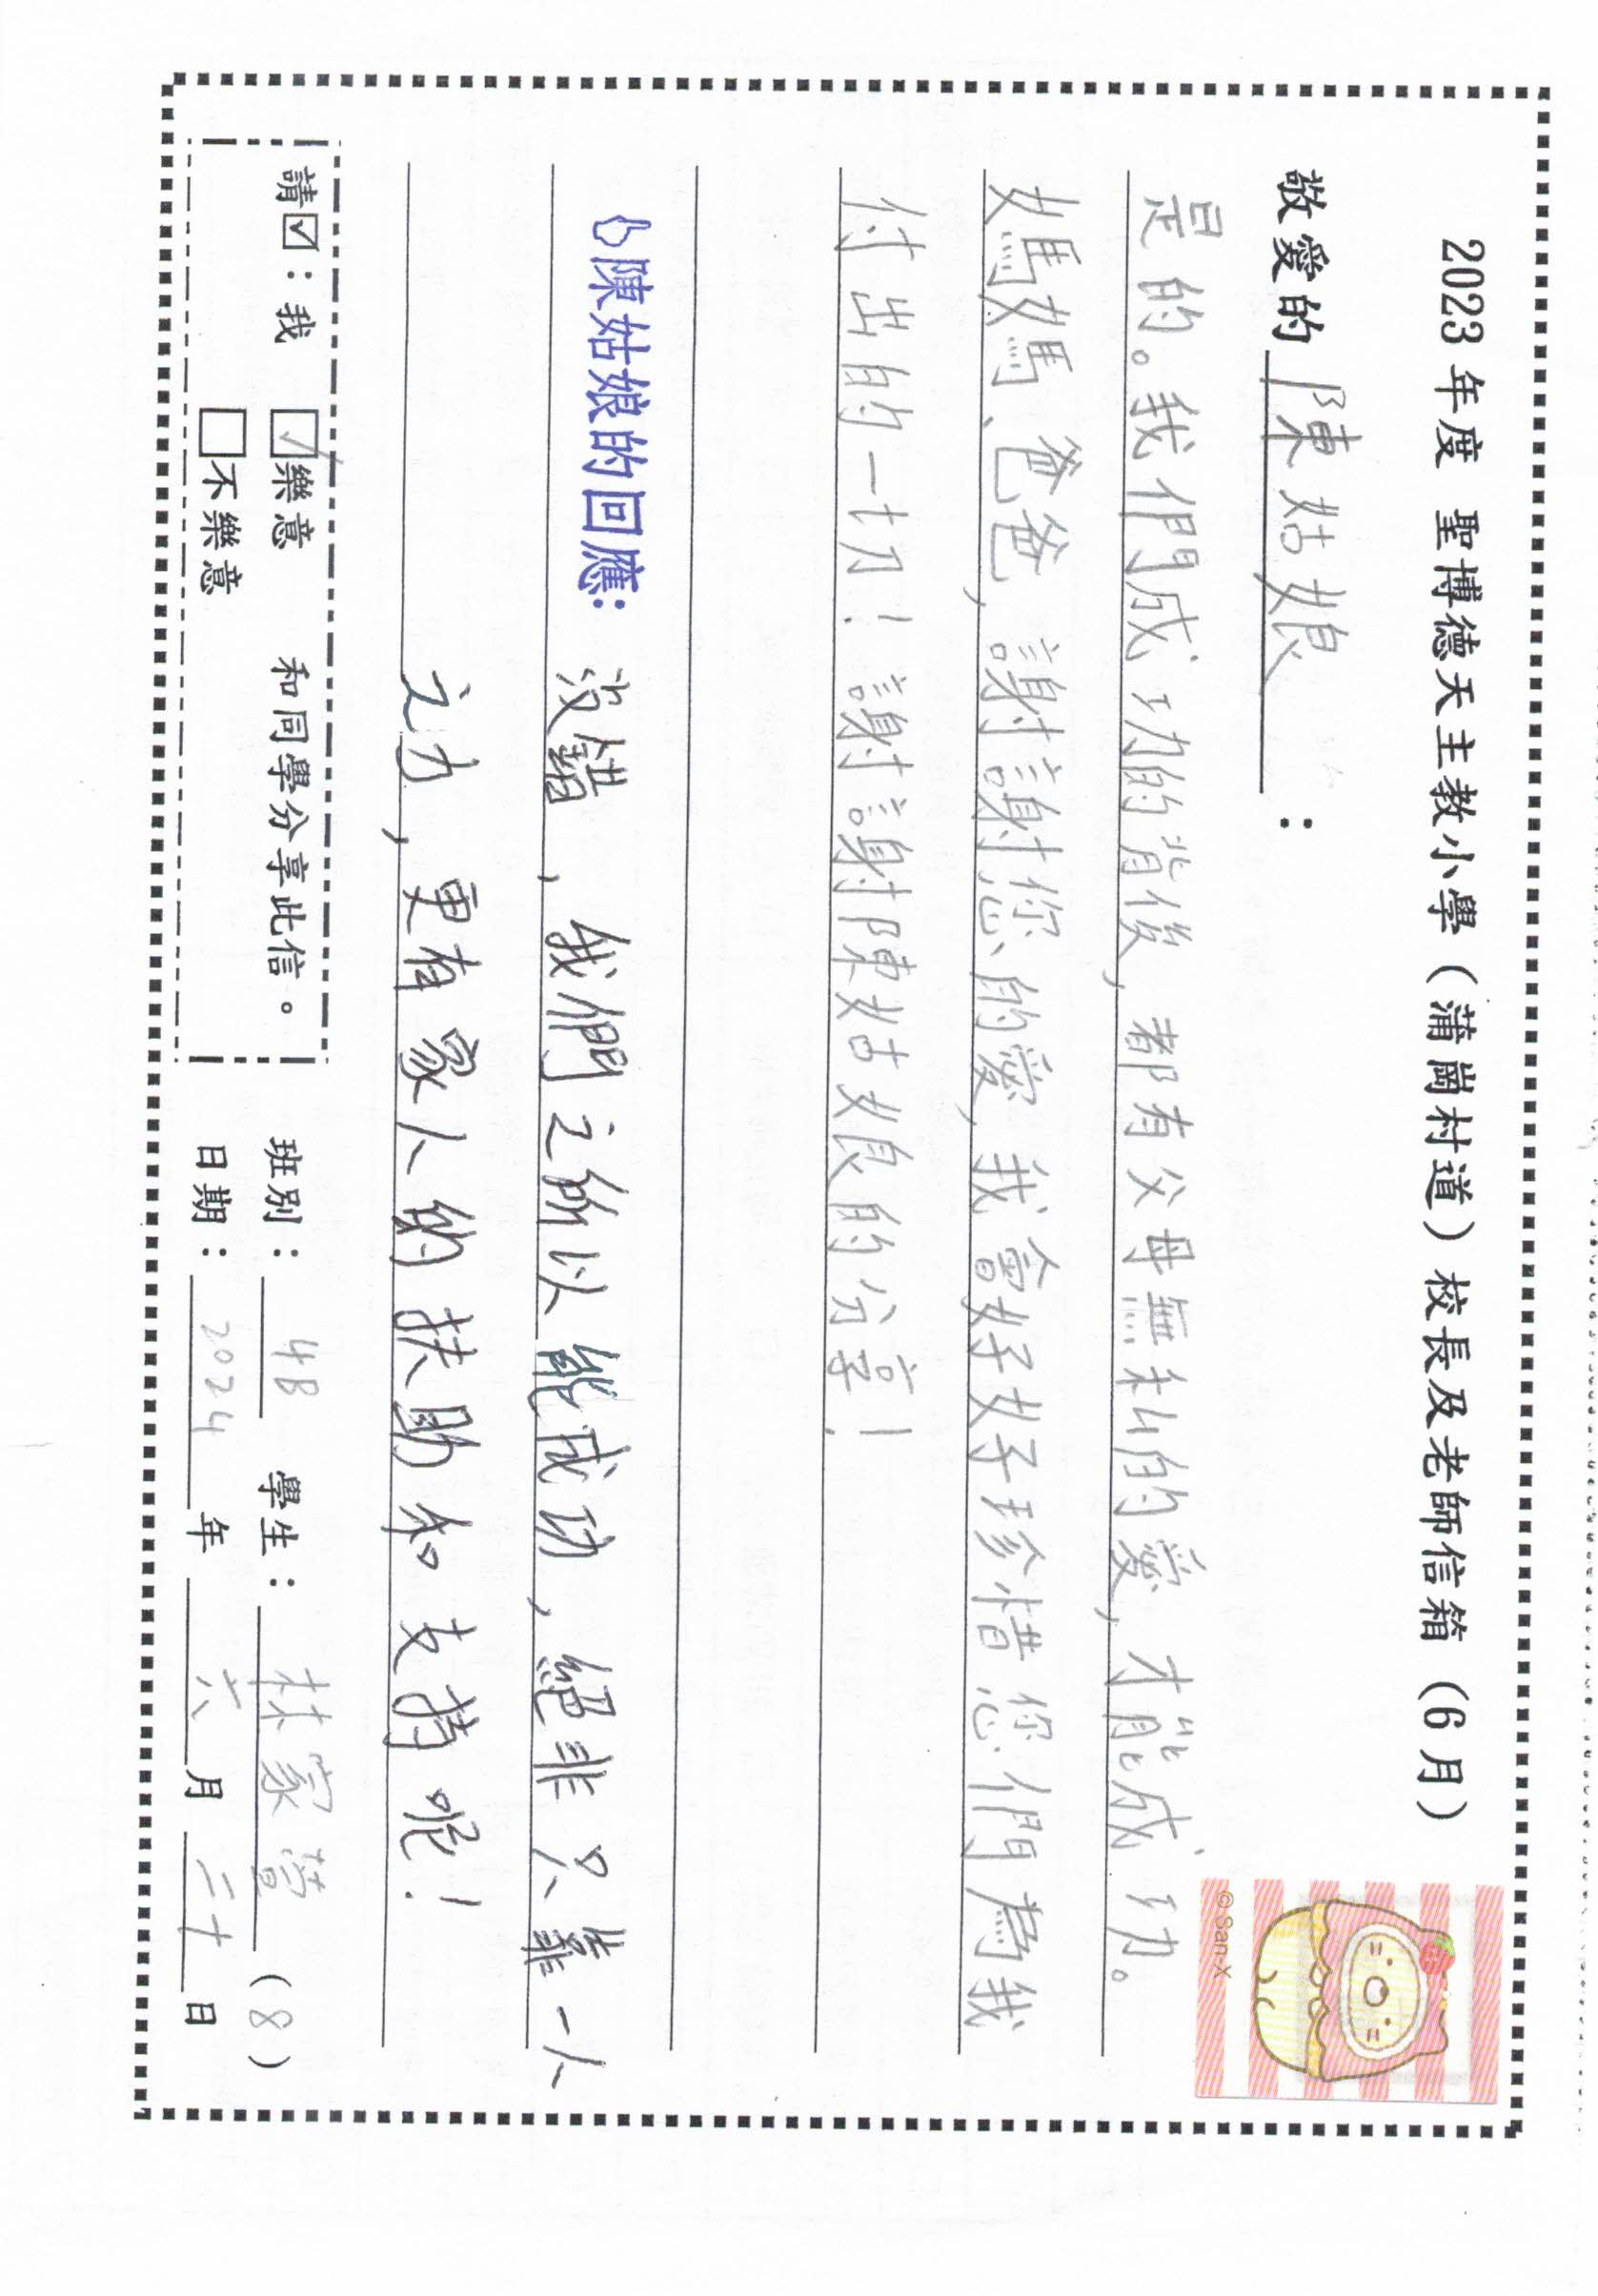 2023年度 聖博德天主教小學（蒲崗村道）校長及老師信箱（6月）
敬愛的陳姑娘：
是的。我們成功的背後，都有父母無私的愛，才能成功。
媽媽、爸爸，謝謝您的愛，我會好好珍惜您們為我
付出的一切！謝謝陳姑娘的分享！
陳姑娘的回應：沒錯，我們之所以能成功，絕非只靠一人
之力，更有家人的扶助和支持呢！
請☑：我 ☑樂意 和同學分享此信。
□不樂意
班別：4B 學生：林家萱（8）
日期：2024年六月二十日
© San-X